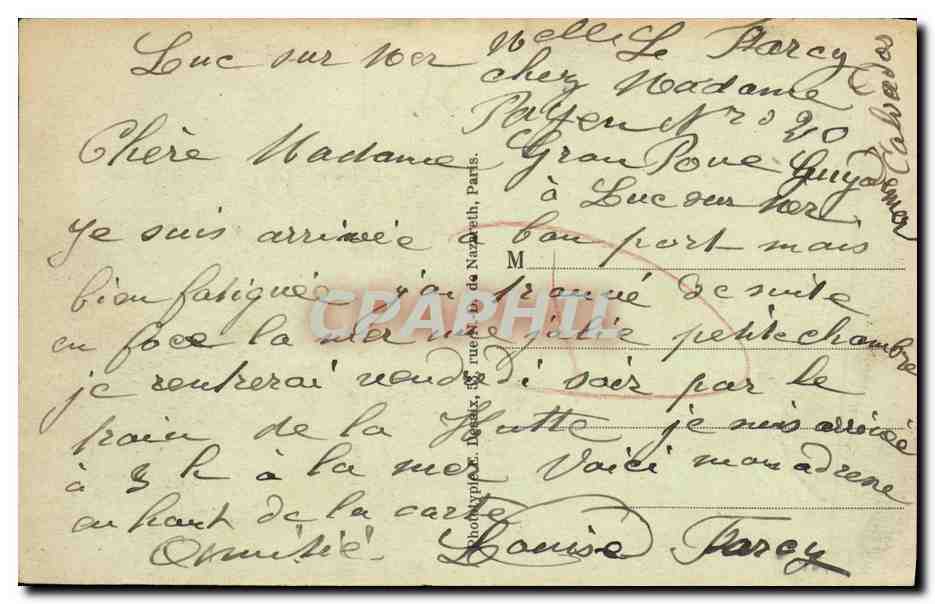 Luc sur Mer
Melle Le Farcy
chez Madame
Payen Nro 20
Gran Roue Guynemer
à Luc sur Mer
Calvados
Chère Madame
Je suis arrivée a bon port mais
bien fatiguée j'ai trouvé de suite
en face la mer une jolie petite chambre
je rentrerai vendredi soir par le
train de la Hutte je suis arrivée
à 3 h à la mer Voici mon adresse
en haut de la carte
Amitié Louise Farcy
M
Phototypie E. Desaix, 33, rue N. D. de Nazareth, Paris.
CPAPHIL